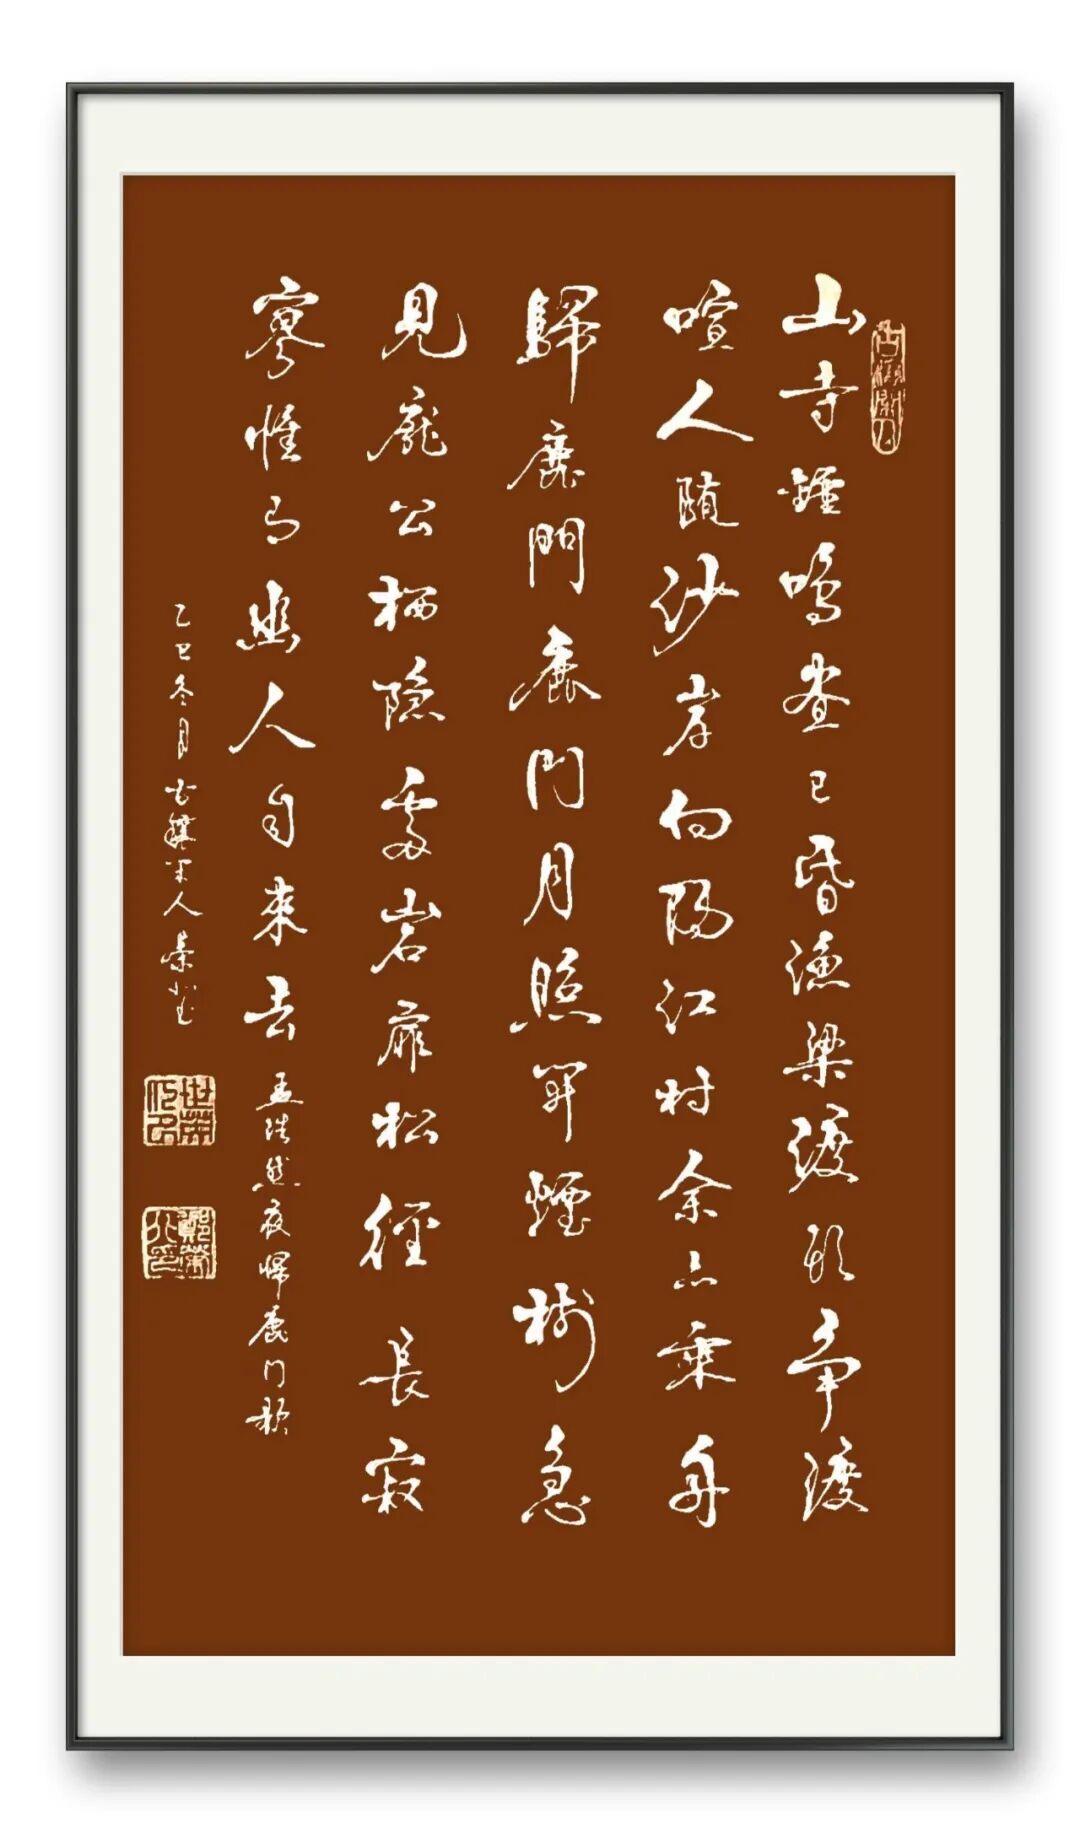 山寺鐘鳴昼已昏漁梁渡头争渡
喧人随沙岸向陽江村余亦乘舟
歸鹿門鹿門月照開煙樹急
見龐公栖隐處岩扉松徑長寂
寥惟有幽人自來去孟浩然夜歸鹿门歌
乙巳冬月古人荣